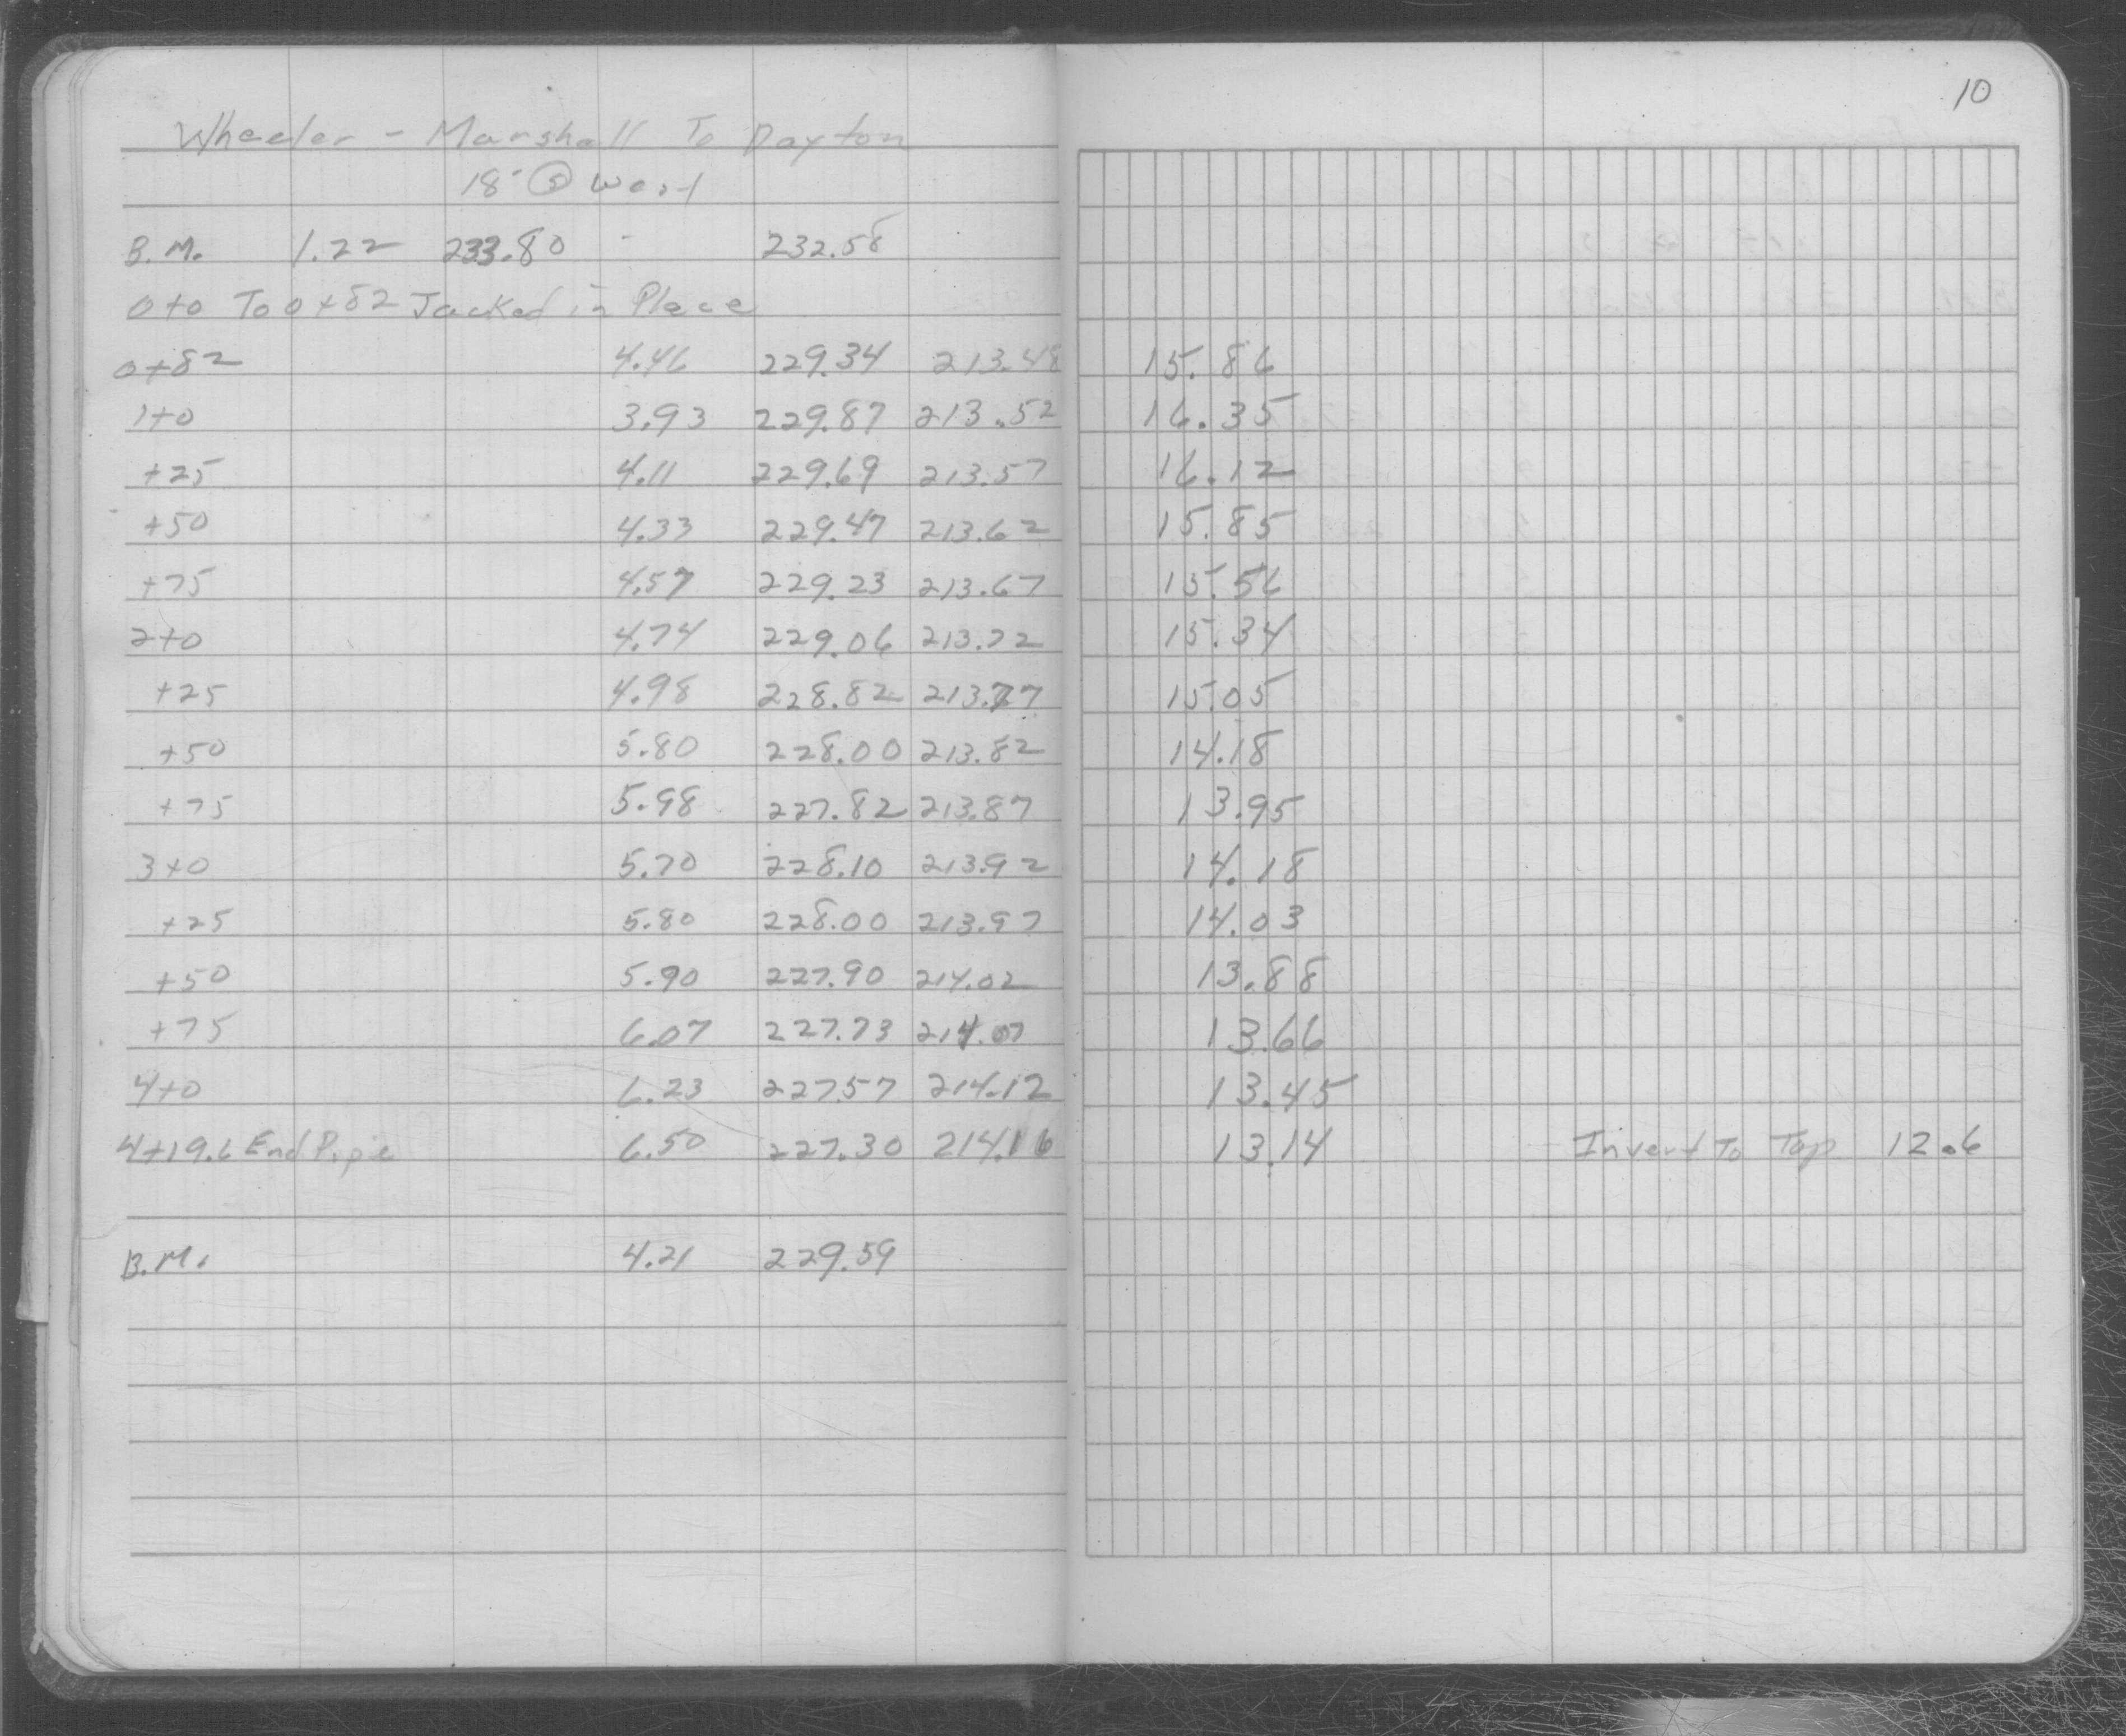 10
Wheeler - Marshall To Dayton
18" Ⓢ West
B.M. 1.22 233.80 - 232.58
0+0 To 0+82 Jacked in Place
0+82 4.46 229.34 213.48 15.86
1+0 3.93 229.87 213.52 16.35
+25 4.11 229.69 213.57 16.12
+50 4.33 229.47 213.62 15.85
+75 4.57 229.23 213.67 15.56
2+0 4.74 229.06 213.72 15.34
+25 4.98 228.82 213.77 15.05
+50 5.80 228.00 213.82 14.18
+75 5.98 227.82 213.87 13.95
3+0 5.70 228.10 213.92 14.18
+25 5.80 228.00 213.97 14.03
+50 5.90 227.90 214.02 13.88
+75 6.07 227.73 214.07 13.66
4+0 6.23 227.57 214.12 13.45
4+19.6 End Pipe 6.50 227.30 214.16 13.14 Invert To Top 12.6
B.M. 4.21 229.59